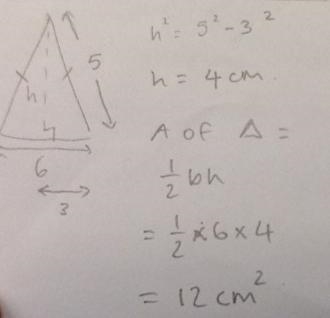 5
h
6
3
h² = 5² - 3²
h = 4 cm.
A of Δ =
½ bh
= ½ × 6 × 4
= 12 cm²